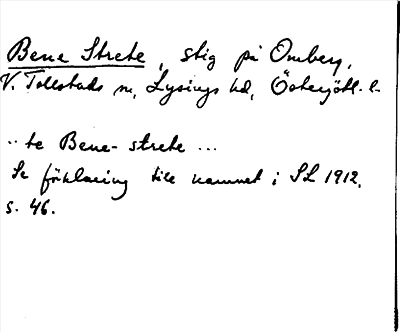 Bena Strete, stig på Omberg,
V. Tollstads sn, Lysings hd, Östergötl. l.
.. te Bene-strete ...
Se förklaring till namnet i SL 1912,
s. 46.